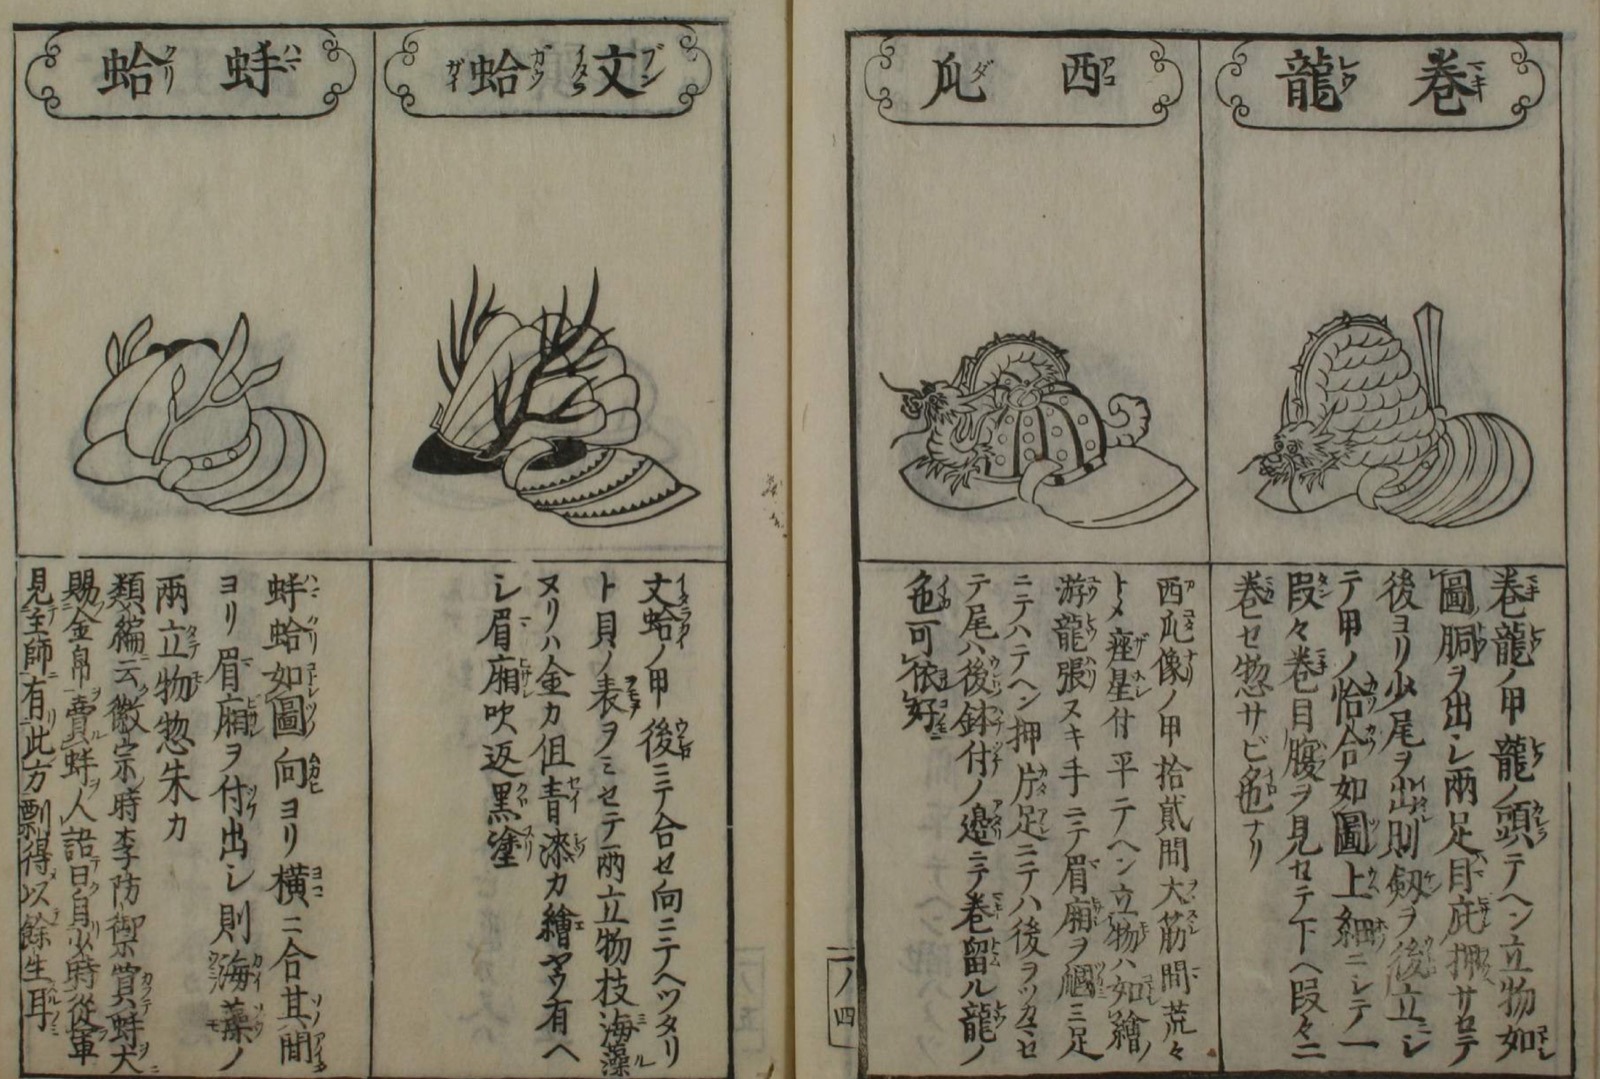 巻龍
巻龍ノ甲龍ノ頭テヘン立物如
圖胴ヲ出シ兩足目庇押サセテ
後ヨリ少尾ヲ出則劔ヲ後立ニシ
テ甲ノ恰合如圖上細ニシテ一
段々巻目腹ヲ見セテ下ヘ段々ニ
巻セ惣サビ色ナリ
西瓜
西瓜像ノ甲拾貳間大筋間荒々
トメ座星付平テヘン立物ハ如繪ノ
游龍張ヌキ手ニテ眉廂ヲ三足
ニテハテヘン押片足ニテハ後ヲツカマセ
テ尾ハ後鉢付ノ邉ニテ巻留ル龍ノ
色可依好
二ノ四
文蛤
文蛤ノ甲後ニテ合セ向ニテヘツタリ
ト貝ノ表ヲミセテ兩立物枝海藻
ヌリハ金カ但青漆カ繪ヤウ有ヘ
シ眉廂吹返黒塗
蚌蛤
蚌蛤如圖向ヨリ横ニ合其間
ヨリ眉廂ヲ付出シ則海藻ノ
兩立物惣朱カ
類編云徽宗時李防禦買蚌犬
賜金帛賣蚌人語曰自少時從軍
見主師有此方剽得以餘生耳